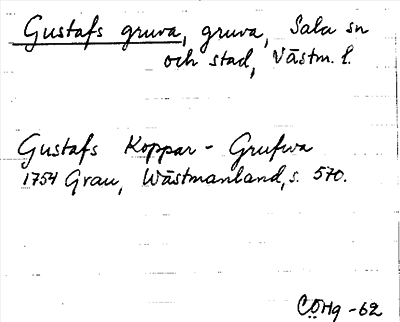 Gustafs gruva, gruva, Sala sn
och stad, Västm. l.
Gustafs Koppar - Grufwa
1754 Grau, Wästmanland, s. 570.
CÖHg -62